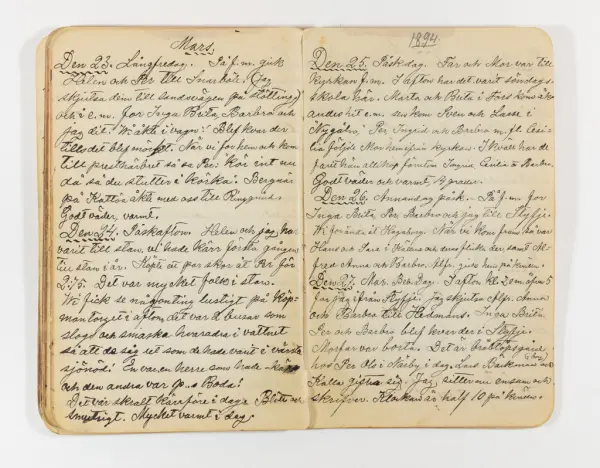 Mars.
Den 23. Långfredag. På f.m. gick
Helen och Per till Snarböle. (Jag
skjutsa dem till landsvägen på stötting)
och i e.m. for Inga Brita, Barbro och
jag dit. Vi åkte i vagn! Blef kvar der
tills det blef mörkt. När vi for hem och kom
till presthärbret så sa Per: Kör int nu
då så du stutter i körka! Bergnär
på Kattön åkte med oss till
Godt väder, varmt.
Den 24. Påskafton. Helen och jag har
varit till stan, vi hade kärr första gången
till stan i år. Köpte ett par skor åt Per för
2.75. Det var mycket folk i stan.
Vi fick se någonting lustigt på Köp-
mantorget i afton det var 2 busar som
slogo och smaska hvarandra i vattnet
så att de såg ut som de hade varit i värsta
sjönöd! En var en herre som hade
och den andra var Boda!
Det var skralt kärrföre i dag. Blött och
smutsigt. Mycket varmt i dag.
1894
Den 25. Påskdag. Far och Mor var till
kyrkan f.m. I afton har det varit söndags-
skola här. Marta och Brita i Fors kom åk-
andes hit e.m. sen kom Sven och Lasse i
Nygåln, Per Ingrid och Barbro m.fl. Cesi-
lia följde Mor hem ifrån kyrkan. I kväll har de
farit hän allihop förutom Ingrid Cesilia o Barbro.
Godt väder och varmt, 4 grader.
Den 26. Annandag påsk. På f.m. for
Inga Brita Per Barbro och jag till Styfje.
Vi for ända åt Hägaborg. När vi kom fram så var
Hans och Sara i Hilans och deras flicka der, samt Al-
fred Anna och Barbro. Alfr. gick hem på kvällen.
Den 27. Mar. Be. Dag. I afton kl. 2 em åfven 5
for jag ifrån Styfje. Jag skjutsa Alfr. Anna
och Barbro till Hedmans. Inga Brita
Per och Barbro blef kvar der i Styfje.
Morfar var borta. Det är bröllopsgård
hos Per Ols i Näsby i dag. Lars Bäckman och
Kalla gifta sig. Jag sitter nu ensam och
skrifver. Klockan är half 10 på kvällen.